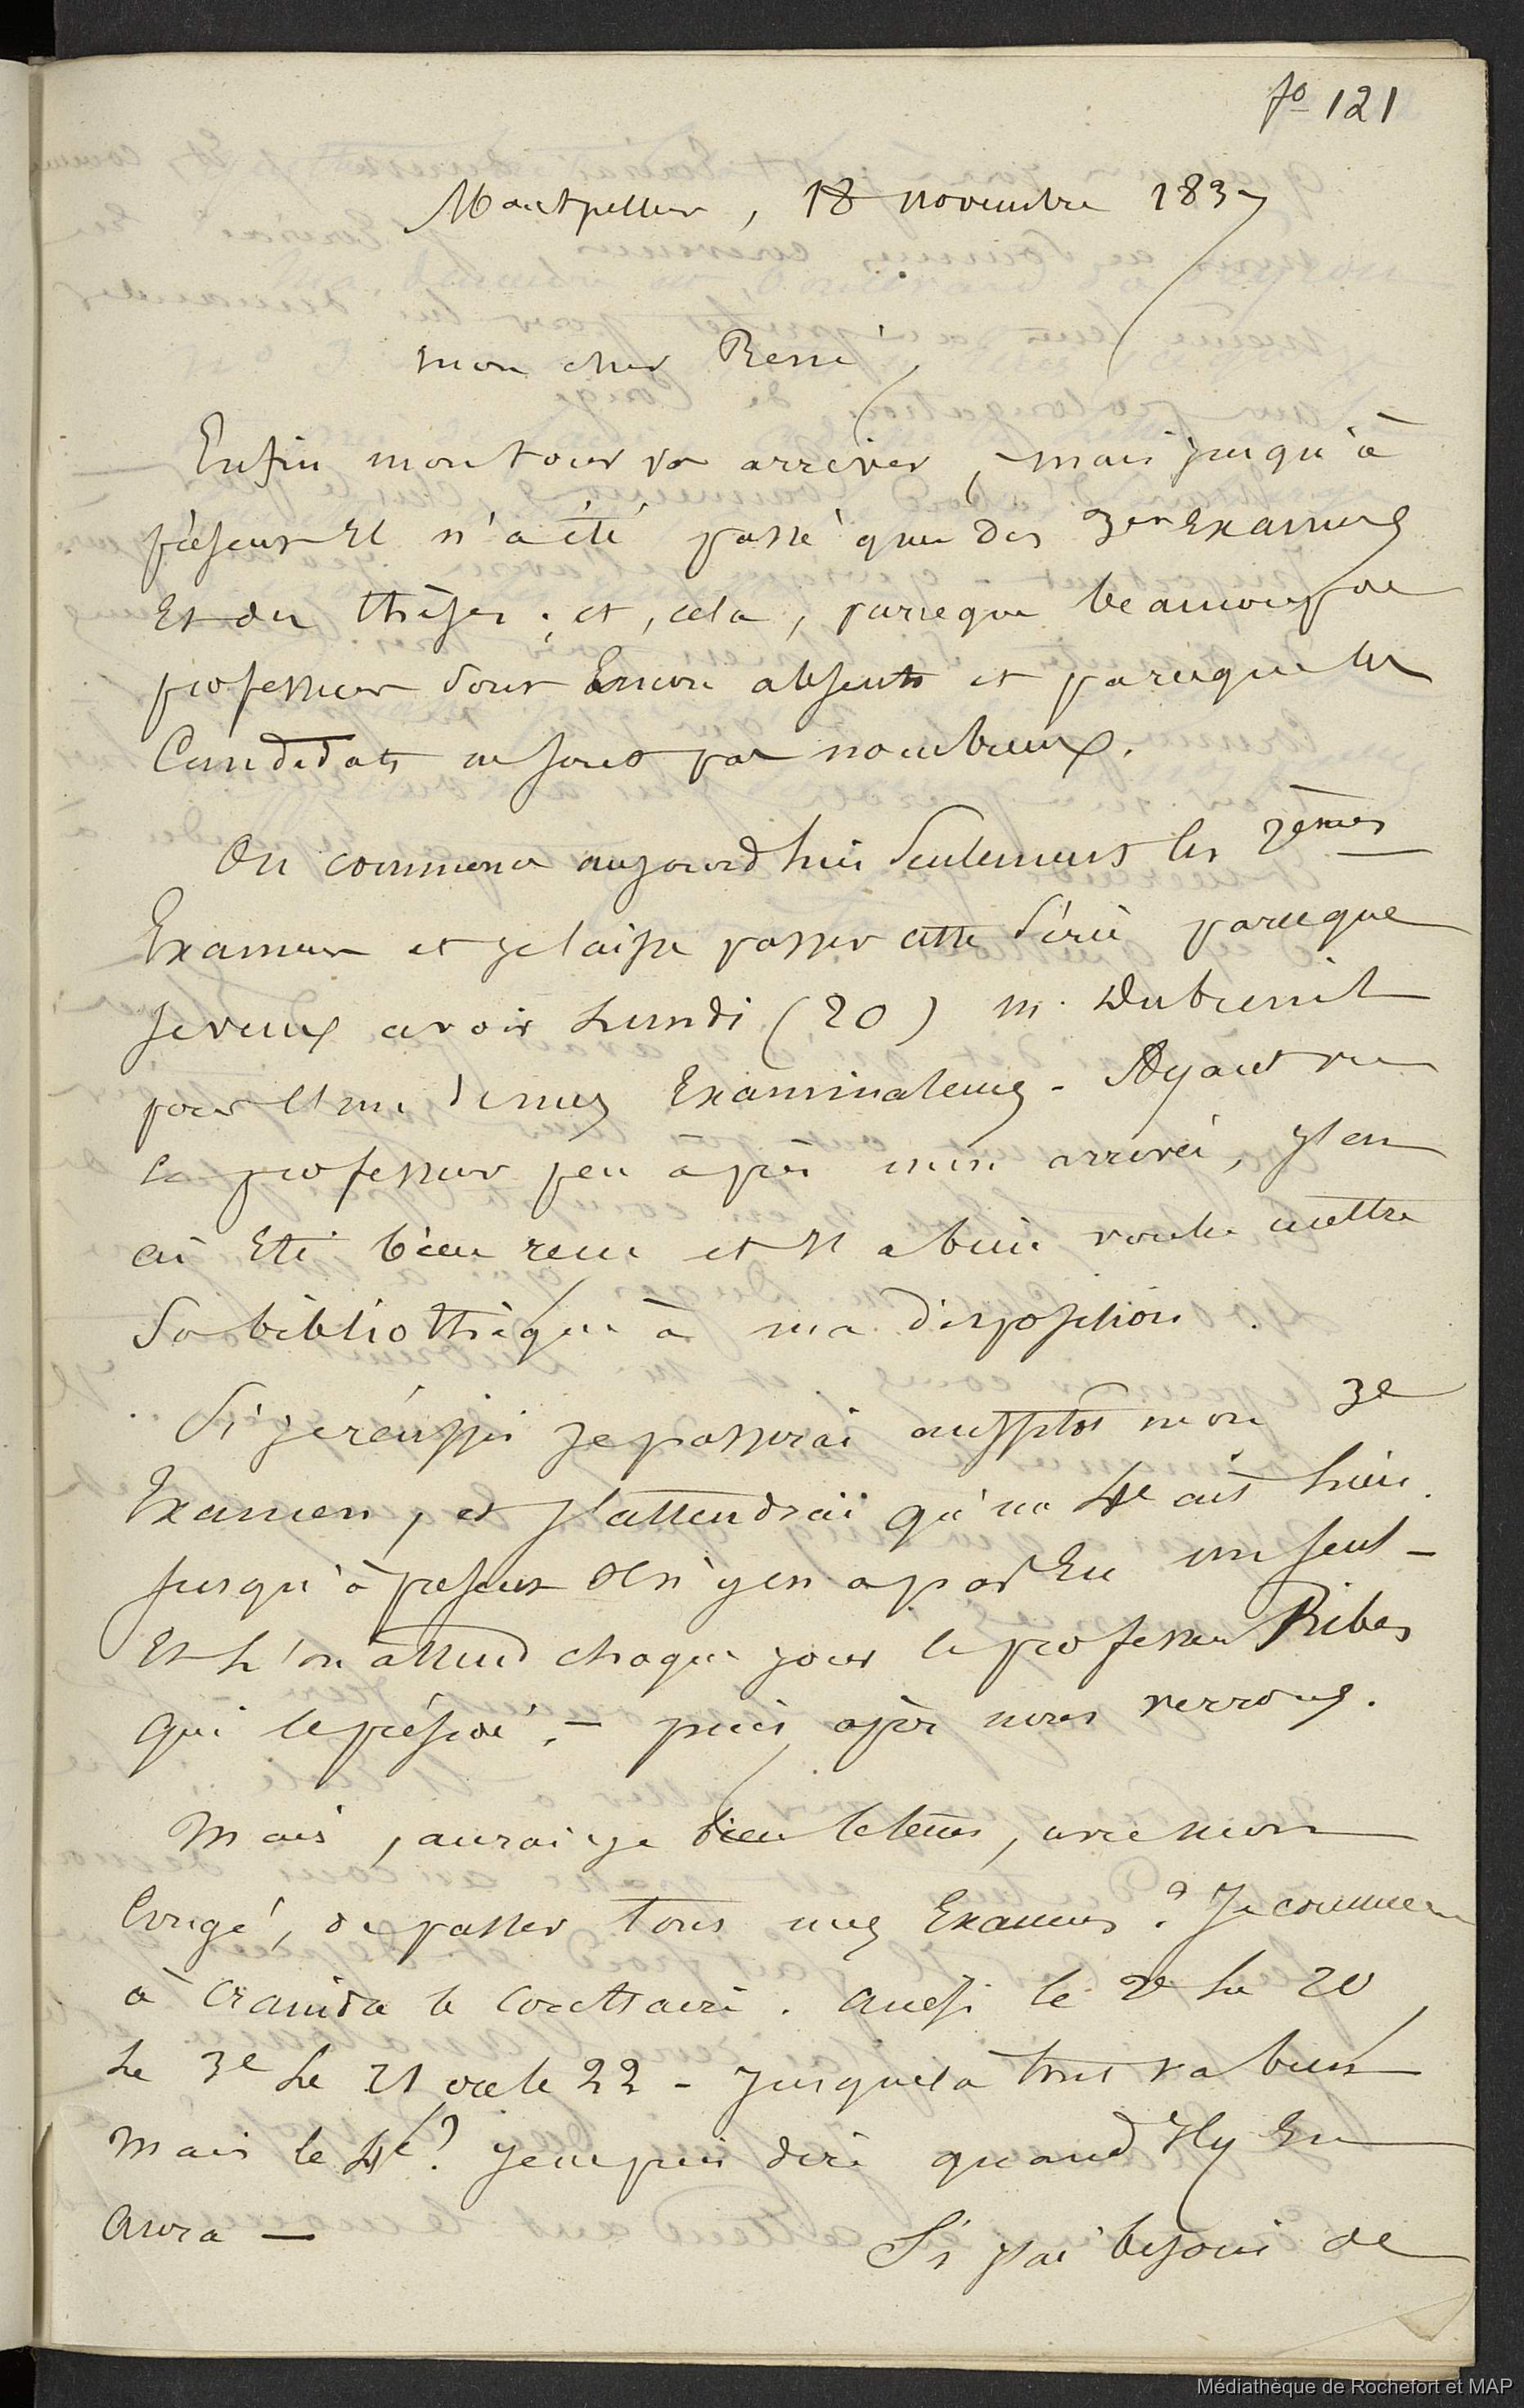 fo 121
Montpellier, 18 novembre 1837
mon cher René,
Enfin mon tour va arriver, mais jusqu'à
présent Il n'a été passé que des 3es Examens
Et des thèses ; et, cela, parceque beaucoup de
professeurs sont Encore absents et parceque les
Candidats ne sont pas nombreux.
On commence aujourd'hui seulement les 2èmes
Examens et je laisse passer cette série parceque
je veux avoir Lundi (20) M. Dubreuil
pour l'un de mes Examinateurs - Ayant vu
ce professeur peu après mon arrivée, j'en
ai Eté bien reçu et Il a bien voulu mettre
Sa bibliothèque à ma disposition.
Si je réussis je passerai aussitôt mon 3e
Examen, et j'attendrai qu'un 4e ait lieu.
Jusqu'à présent Il n'y en a pas Eu un seul -
Et L'on attend chaque jour le professeur Ribes
qui le préside, - puis, après nous verrons.
Mais, aurai-je bien le temps, avec mon
Congé, de passer tous mes Examens ? Je commence
à craindre le contraire. Ainsi le 2e Le 20,
Le 3e Le 21 ou le 22 - Jusque là tout va bien
Mais le 4e ? Je ne puis dire quand Il y En
Aura - Si j'ai besoin de
Médiathèque de Rochefort et MAP